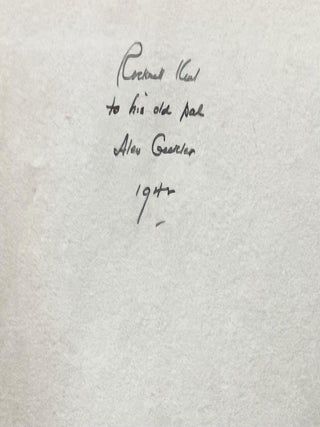 Rockwell Kent
to his old pal
Alex
1942